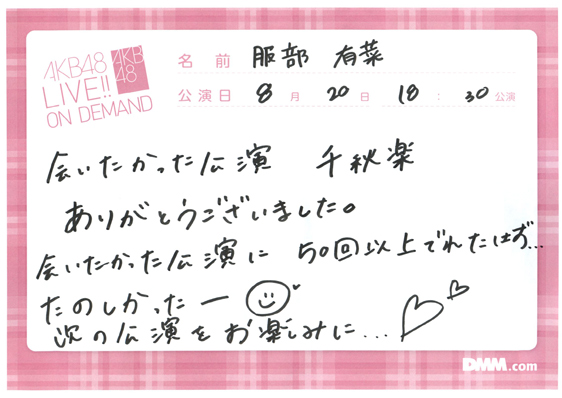 AKB48
LIVE!!
ON DEMAND
AKB
48
名前 服部 有菜
公演日 8月 20日 18:30公演
会いたかった公演 千秋楽
ありがとうございました。
会いたかった公演に 50回以上でれたはず...
たのしかったー
次の公演をお楽しみに...
DMM.com